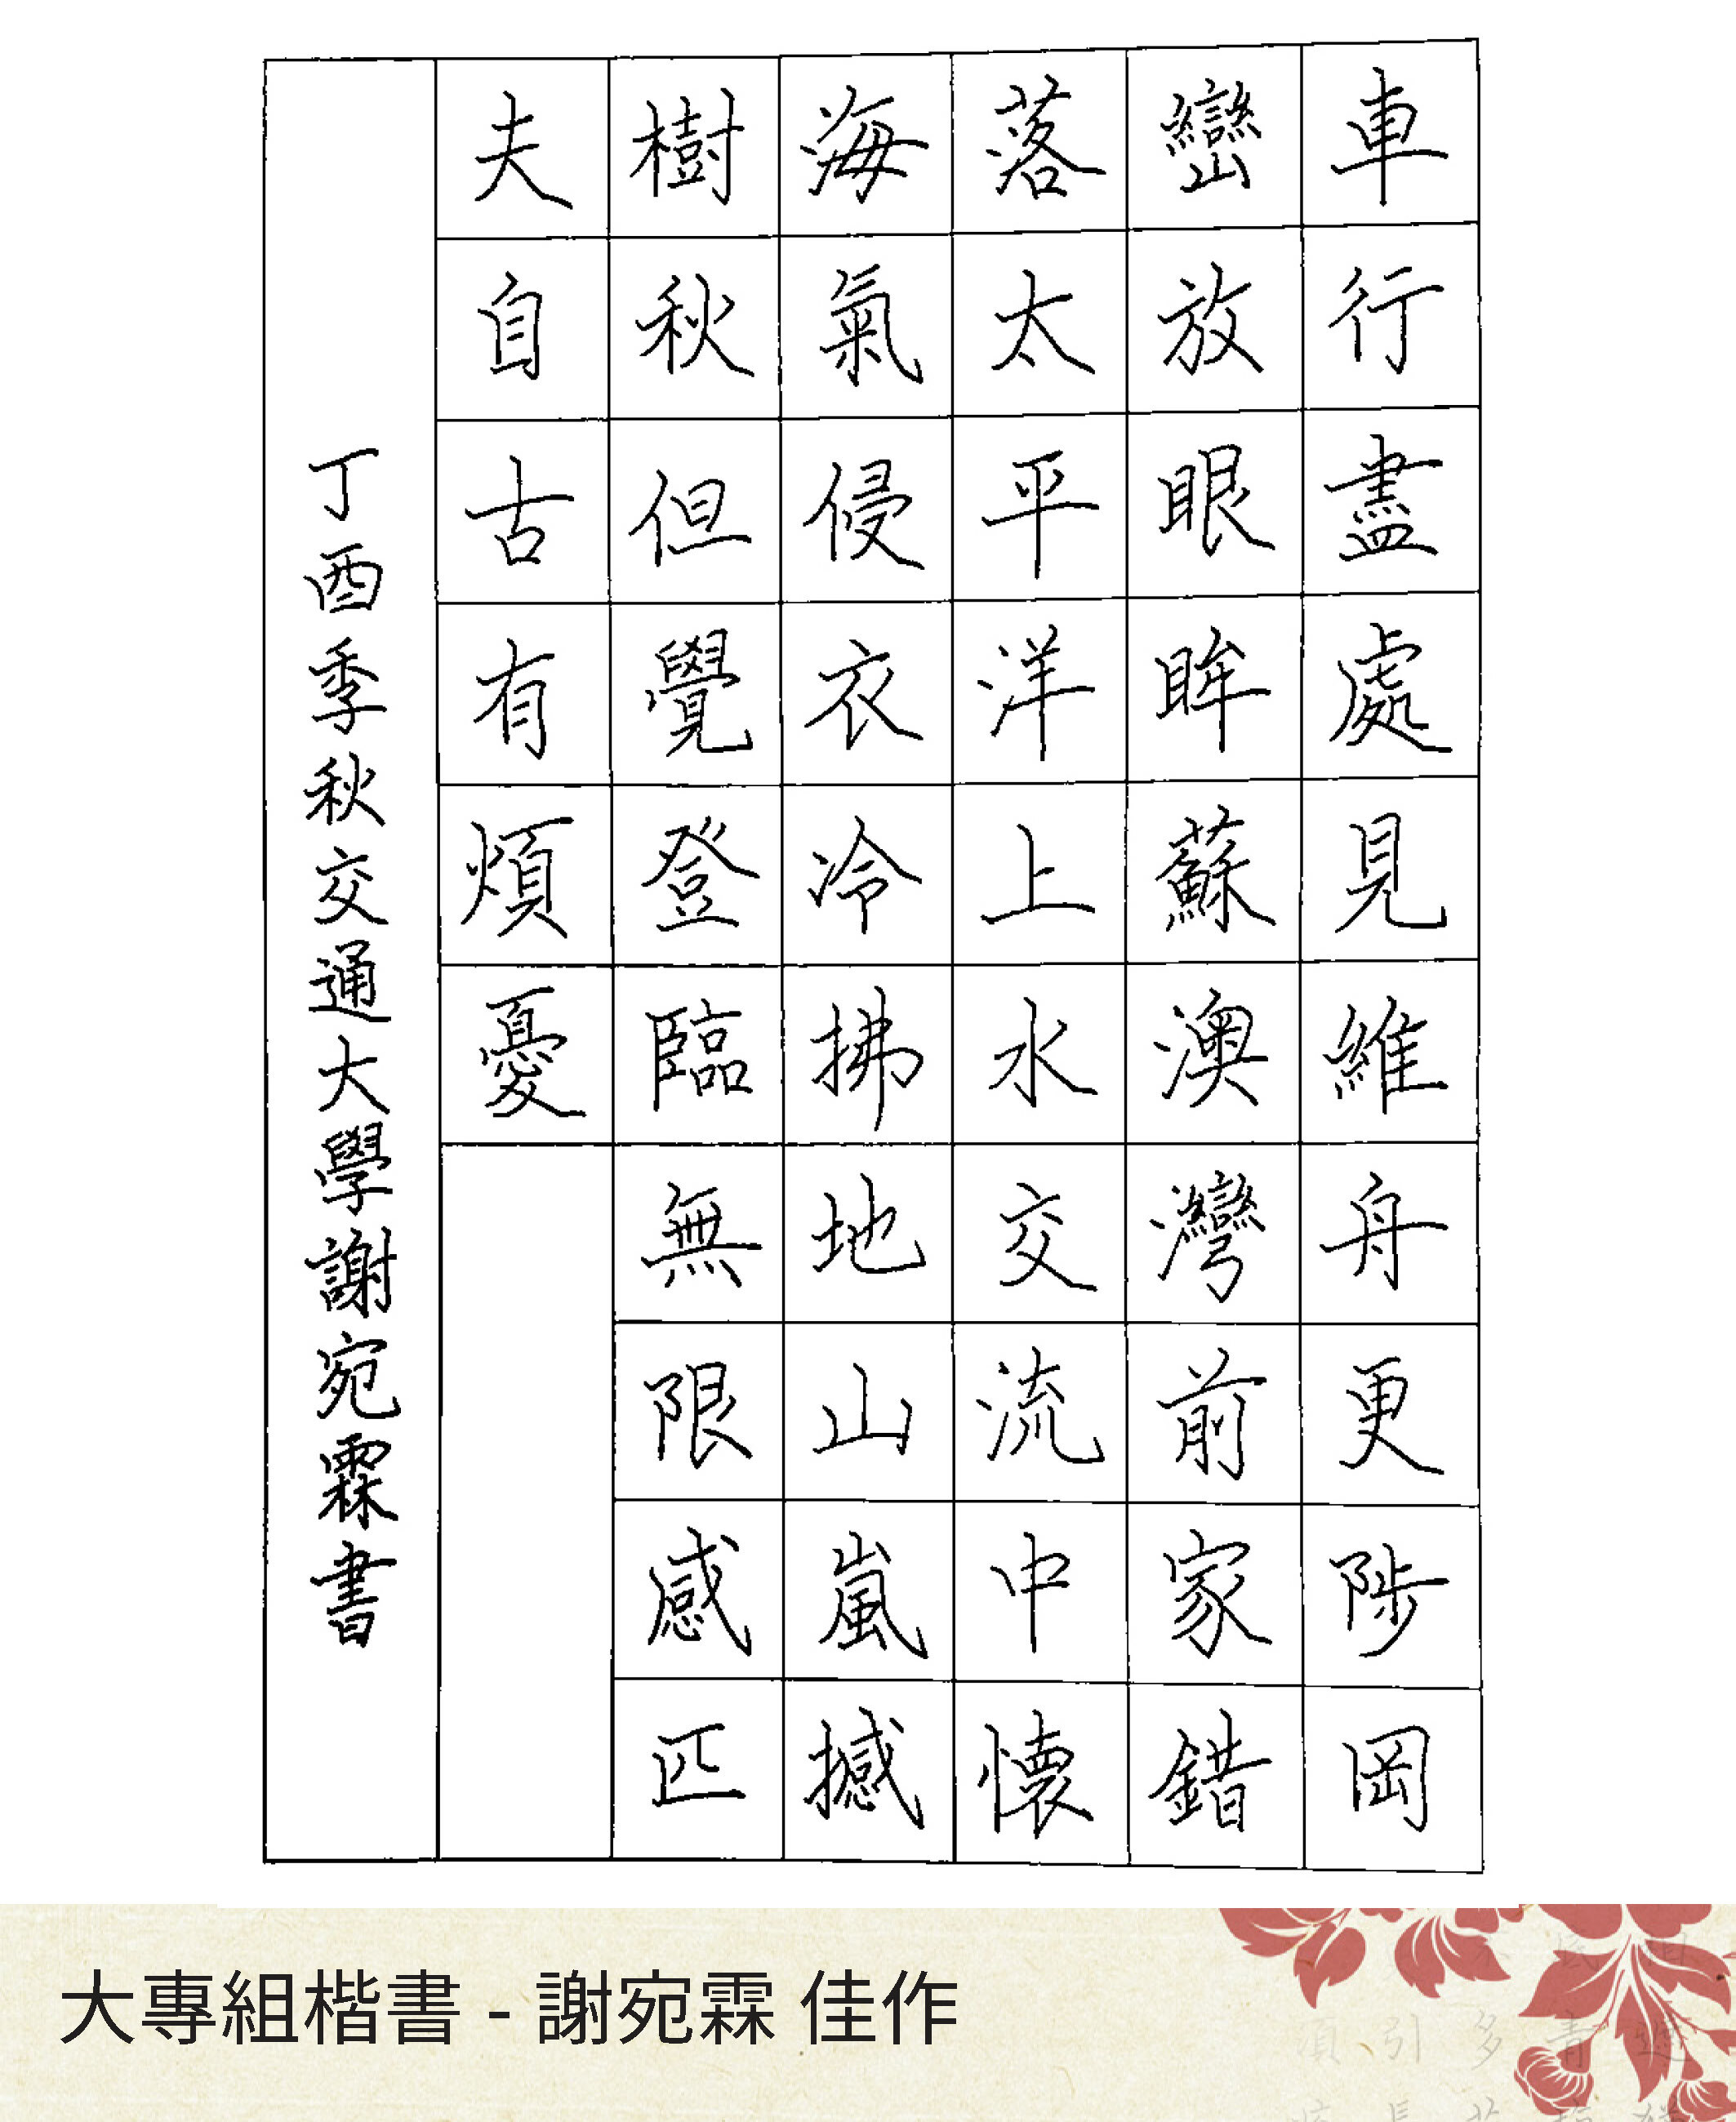 車行盡處見維舟更陟岡
巒放眼眸蘇澳灣前家錯
落太平洋上水交流中懷
海氣侵衣冷拂地山嵐撼
樹秋但覺登臨無限感匹
夫自古有煩憂
丁酉季秋交通大學謝宛霖書
大專組楷書 - 謝宛霖 佳作